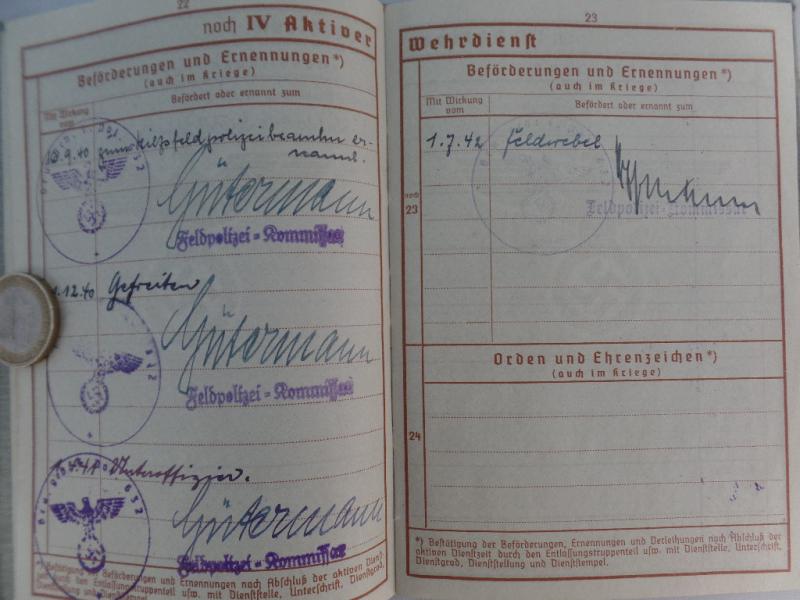 22
noch IV Aktiver
Beförderungen und Ernennungen*)
(auch im Kriege)
Mit Wirkung vom
Befördert oder ernannt zum
.9.40 zum Hilfsfeldpolizeibeamten er-
nannt.
Gütermann
Feldpolizei-Kommissar
632
1.12.40 Gefreiten
Gütermann
Feldpolizei-Kommissar
Unteroffizier.
632
Gütermann
Feldpolizei-Kommissar
*) Bestätigung der Beförderungen und Ernennungen nach Abschluß der aktiven Dienst-
zeit durch den Entlassungstruppenteil usw. mit Dienststelle, Unterschrift, Dienstgrad,
23
Wehrdienst
Beförderungen und Ernennungen*)
(auch im Kriege)
Mit Wirkung vom
Befördert oder ernannt zum
1.7.42 Feldwebel
noch
23
Feldpolizei-Kommissar
Orden und Ehrenzeichen*)
(auch im Kriege)
24
*) Bestätigung der Beförderungen, Ernennungen und Verleihungen nach Abschluß der
aktiven Dienstzeit durch den Entlassungstruppenteil usw. mit Dienststelle, Unterschrift,
Dienstgrad, Dienststellung und Dienststempel.